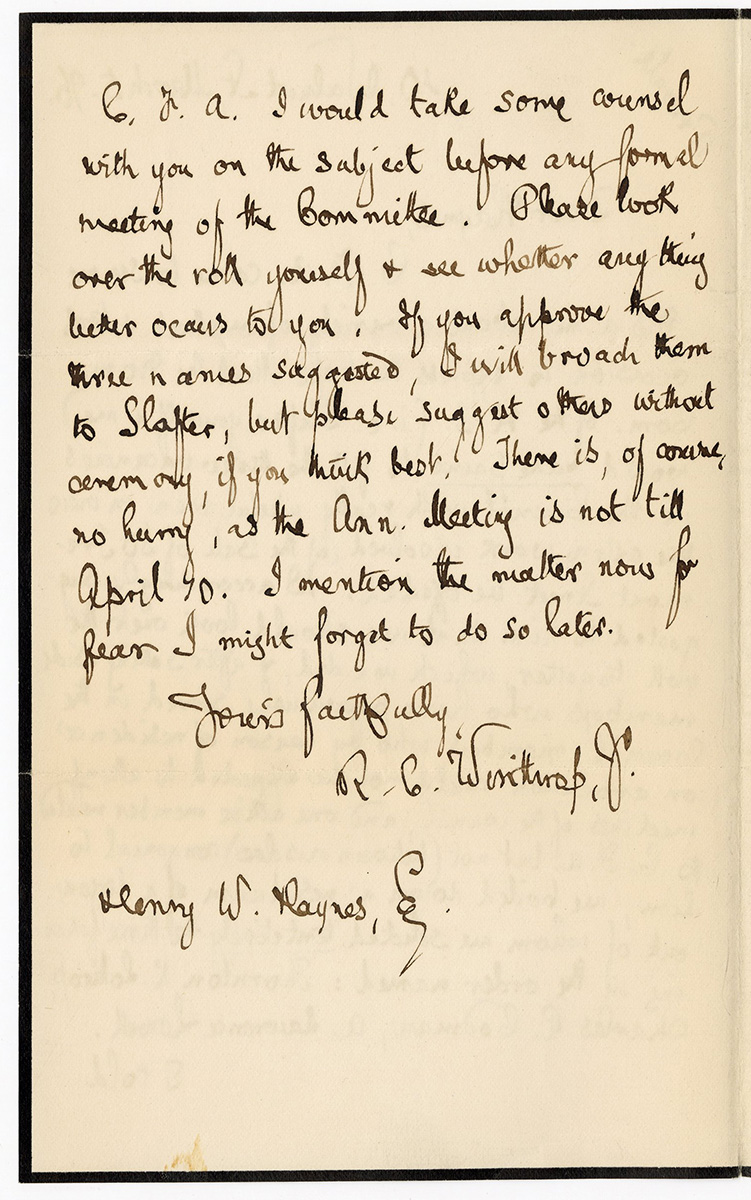 C. F. A. I would take some counsel
with you on the subject before any formal
meeting of the Committee. Please look
over the roll yourself & see whether any thing
better occurs to you. If you approve the
three names suggested, I will broach them
to Slafter, but please suggest others without
ceremony, if you think best. There is, of course,
no hurry, as the Ann. Meeting is not till
April 10. I mention the matter now for
fear I might forget to do so later.
Yours faithfully,
R. C. Winthrop, Jr.
Henry W. Haynes, Esq.